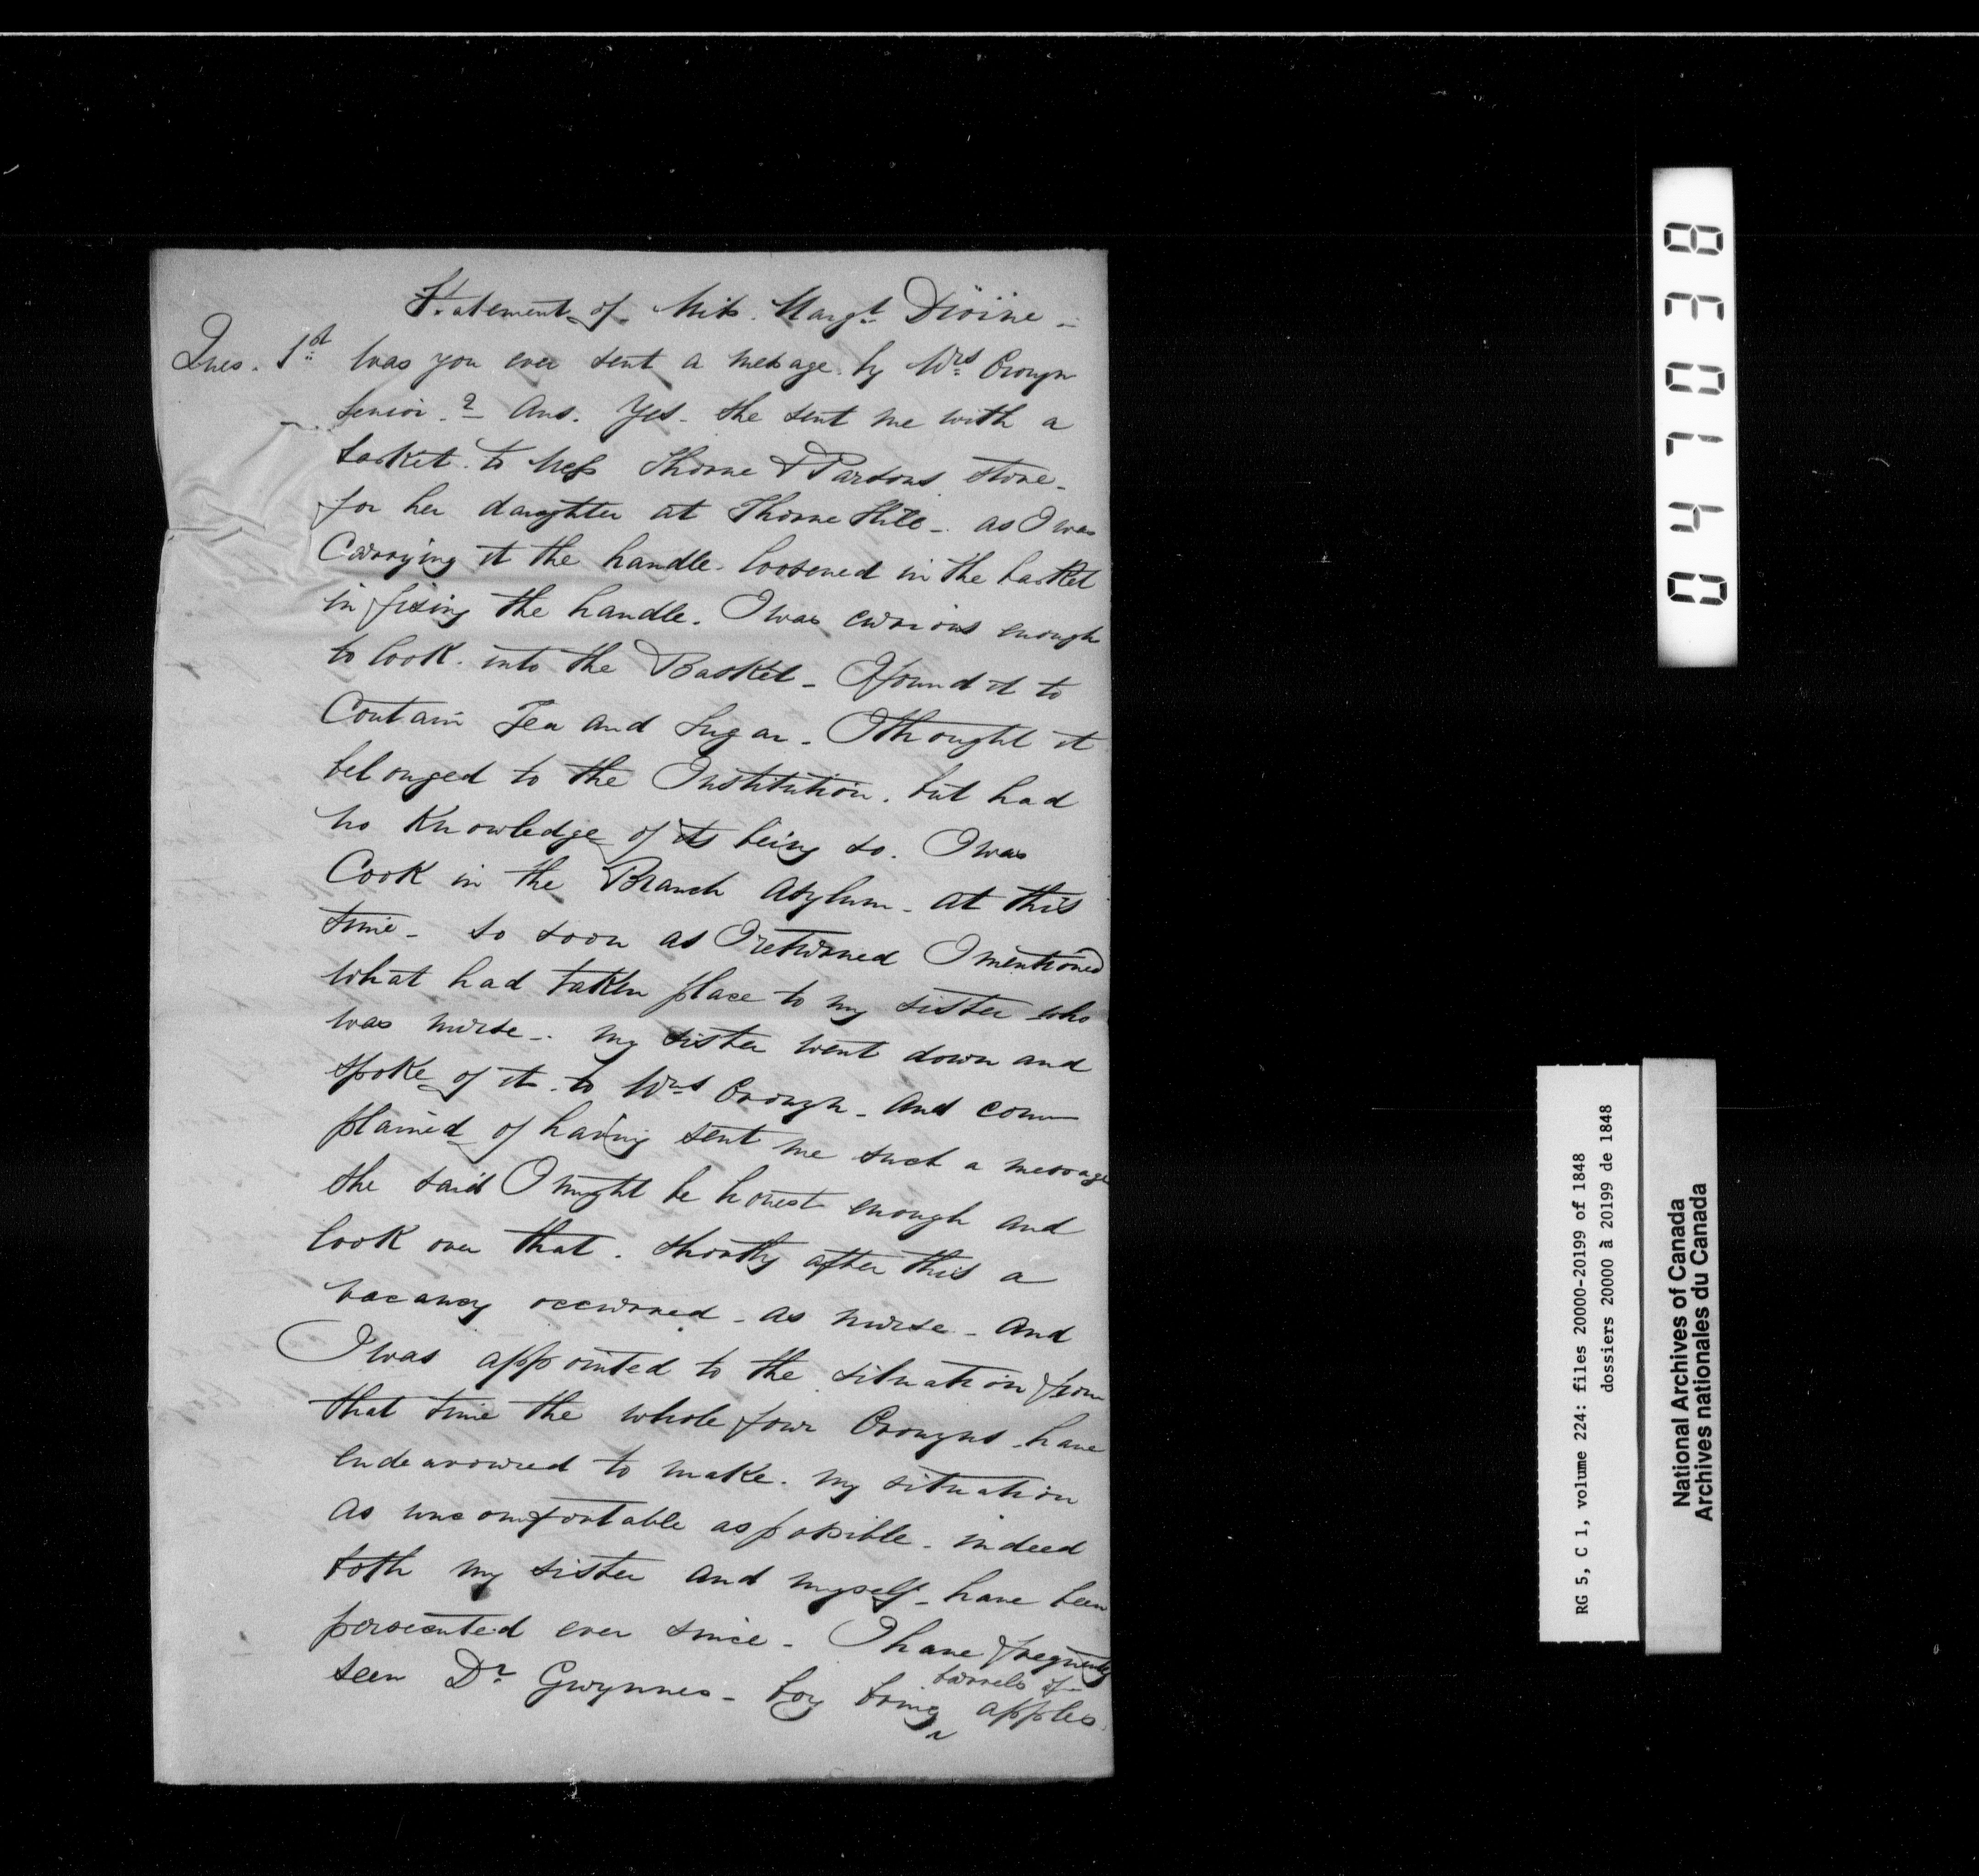 Statement of Miss Margt Divine -
Ques. 1st Was you ever sent a message by Mrs Cronyn
senior? Ans. Yes - she sent me with a
basket to Mess Thorne & Parsons store -
for her daughter at Thorne Hill - as I was
Carrying it the handle loosened in the basket
in fixing the handle. I was curious enough
to look into the Basket - I found it to
Contain Tea and Sugar - I thought it
belonged to the Institution, but had
no Knowledge of its being so. I was
Cook in the Branch Asylum - at this
time - so soon as I returned I mentioned
what had taken place to my sister who
was nurse - my sister went down and
spoke of it to Mrs - and com
plained of having sent me such a message
she said I might be honest enough and
look over that. Shortly after this a
vacancy occurred - as nurse - and
I was appointed to the situation from
that time the whole four have
endeavoured to make my situation
as uncomfortable as possible - indeed
both my sister and myself - have been
persecuted ever since - I have frequently
seen Dr Gwynnes - boy bring barrels of apples
047038
RG 5, C 1, volume 224: files 20000-20199 of 1848
dossiers 20000 à 20199 de 1848
National Archives of Canada
Archives nationales du Canada